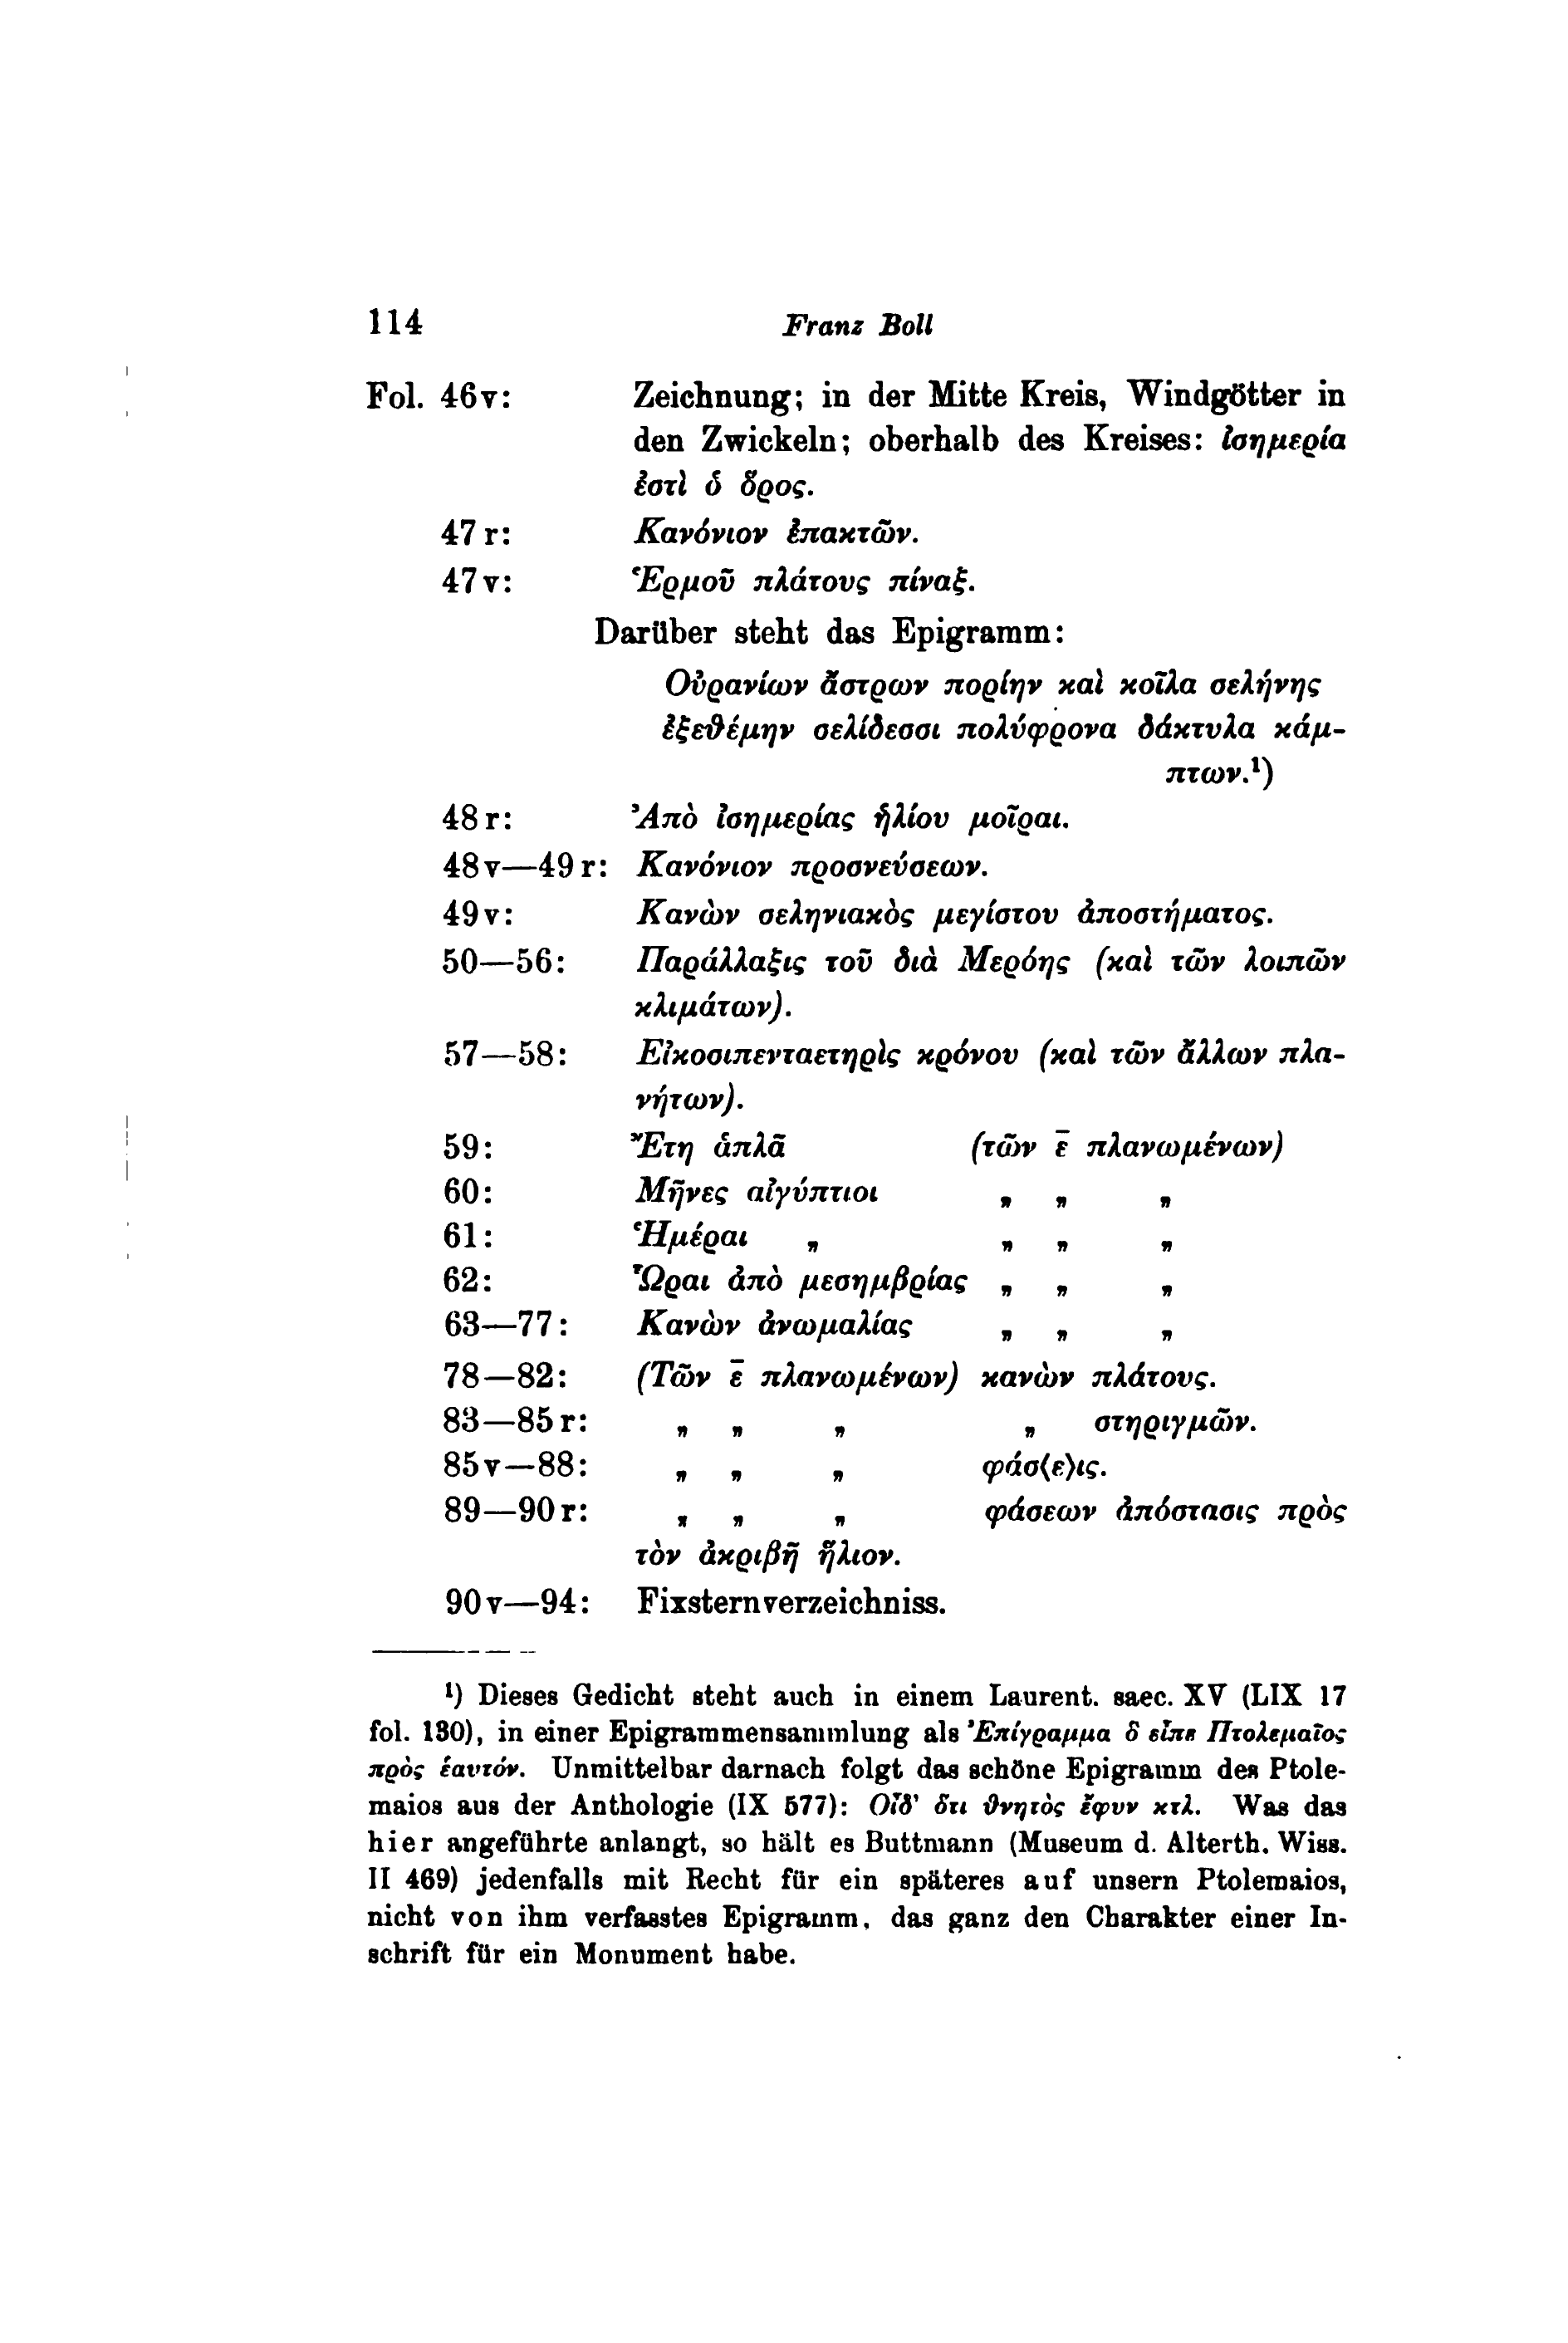 114 Franz Boll
Fol. 46v: Zeichnung; in der Mitte Kreis, Windgötter in
den Zwickeln; oberhalb des Kreises: ἰσημερία
ἐστὶ ὁ ὅρος.
47r: Κανόνιον ἐπακτῶν.
47v: Ἑρμοῦ πλάτους πίναξ.
Darüber steht das Epigramm:
Οὐρανίων ἄστρων πορίην καὶ κοῖλα σελήνης
ἐξεθέμην σελίδεσσι πολύφρονα δάκτυλα κάμ-
πτων.¹)
48r: Ἀπὸ ἰσημερίας ἡλίου μοῖραι.
48v—49r: Κανόνιον προσνεύσεων.
49v: Κανὼν σεληνιακὸς μεγίστου ἀποστήματος.
50—56: Παράλλαξις τοῦ διὰ Μερόης (καὶ τῶν λοιπῶν
κλιμάτων).
57—58: Εἰκοσιπενταετηρὶς κρόνου (καὶ τῶν ἄλλων πλα-
νήτων).
59: Ἔτη ἁπλᾶ (τῶν ε̄ πλανωμένων)
60: Μῆνες αἰγύπτιοι „ „ „
61: Ἡμέραι „ „ „ „
62: Ὧραι ἀπὸ μεσημβρίας „ „ „
63—77: Κανὼν ἀνωμαλίας „ „ „
78—82: (Τῶν ε̄ πλανωμένων) κανὼν πλάτους.
83—85r: „ „ „ „ στηριγμῶν.
85v—88: „ „ „ φάσ⟨ε⟩ις.
89—90r: „ „ „ φάσεων ἀπόστασις πρὸς
τὸν ἀκριβῆ ἥλιον.
90v—94: Fixsternverzeichniss.
¹) Dieses Gedicht steht auch in einem Laurent. saec. XV (LIX 17
fol. 130), in einer Epigrammensammlung als Ἐπίγραμμα ὃ εἶπε Πτολεμαῖος
πρὸς ἑαυτόν. Unmittelbar darnach folgt das schöne Epigramm des Ptole-
maios aus der Anthologie (IX 577): Οἶδ' ὅτι θνητὸς ἔφυν κτλ. Was das
hier angeführte anlangt, so hält es Buttmann (Museum d. Alterth. Wiss.
II 469) jedenfalls mit Recht für ein späteres auf unsern Ptolemaios,
nicht von ihm verfasstes Epigramm, das ganz den Charakter einer In-
schrift für ein Monument habe.